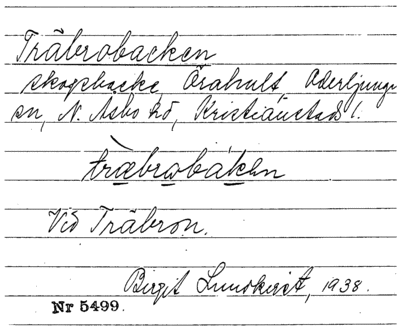 Träbrobacken
skogsbacke, Örahult, Oderljunga
sn, N. Asbo hd, Kristianstads l.
træbrωbáken
Vid Träbron.
Birgit Lundkvist, 1938.
Nr 5499.